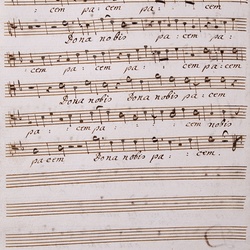 cem pa : cem pa : :
Dona nobis pa : cem
cem pa : cem pa : : cem
Dona nobis Dona nobis pa : cem
pa : cem pa : : cem nobis
pacem Dona nobis pa : : cem.